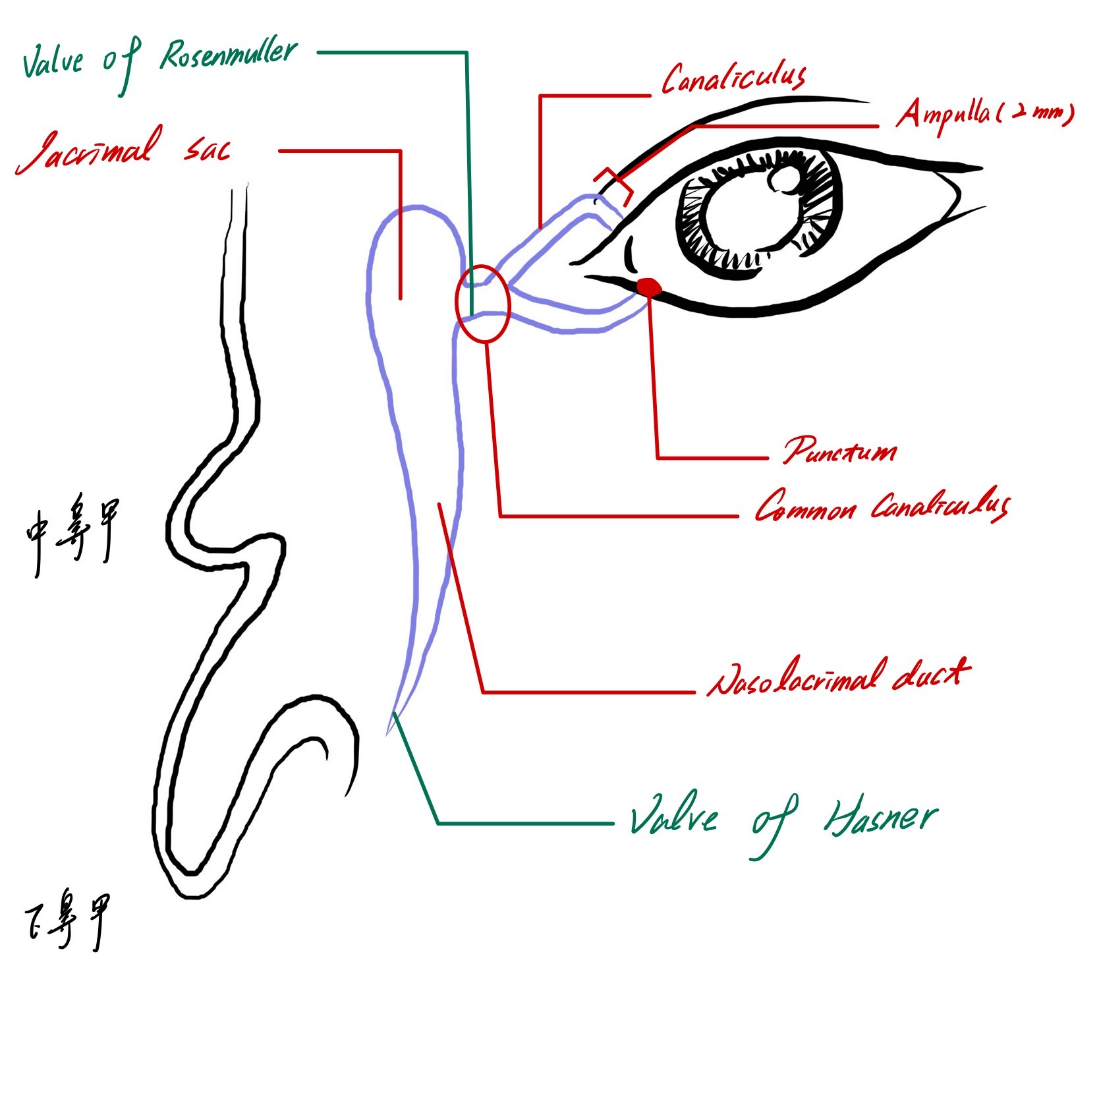 Valve of Rosenmuller
Canaliculus
Ampulla (2mm)
Lacrimal sac
Punctum
Common Canaliculus
中鼻甲
Nasolacrimal duct
Valve of Hasner
下鼻甲